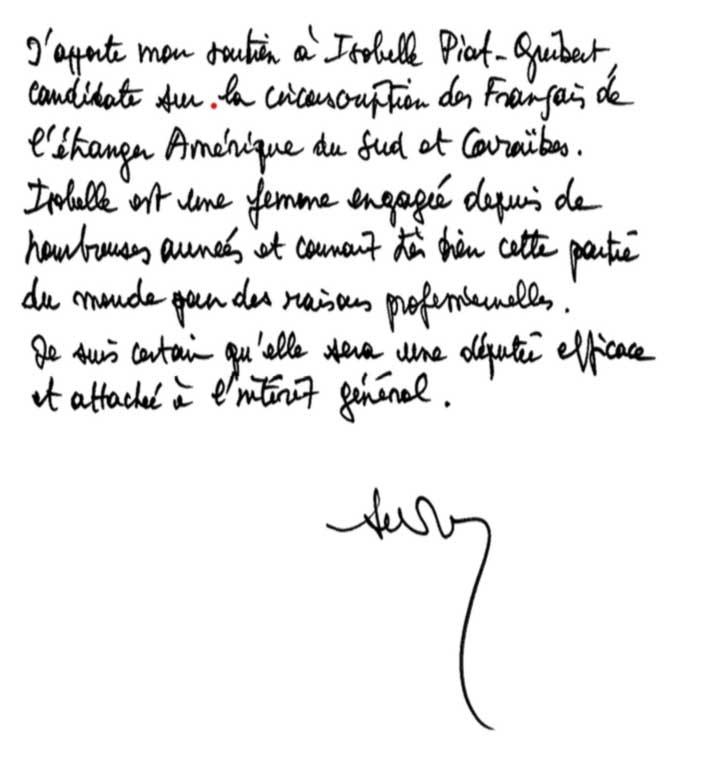 J'apporte mon soutien à Isabelle Piat-Guibert,
candidate sur la circonscription des Français de
l'étranger Amérique du Sud et Caraïbes.
Isabelle est une femme engagée depuis de
nombreuses années et connaît très bien cette partie
du monde pour des raisons professionnelles.
Je suis certain qu'elle sera une députée efficace
et attachée à l'intérêt général.